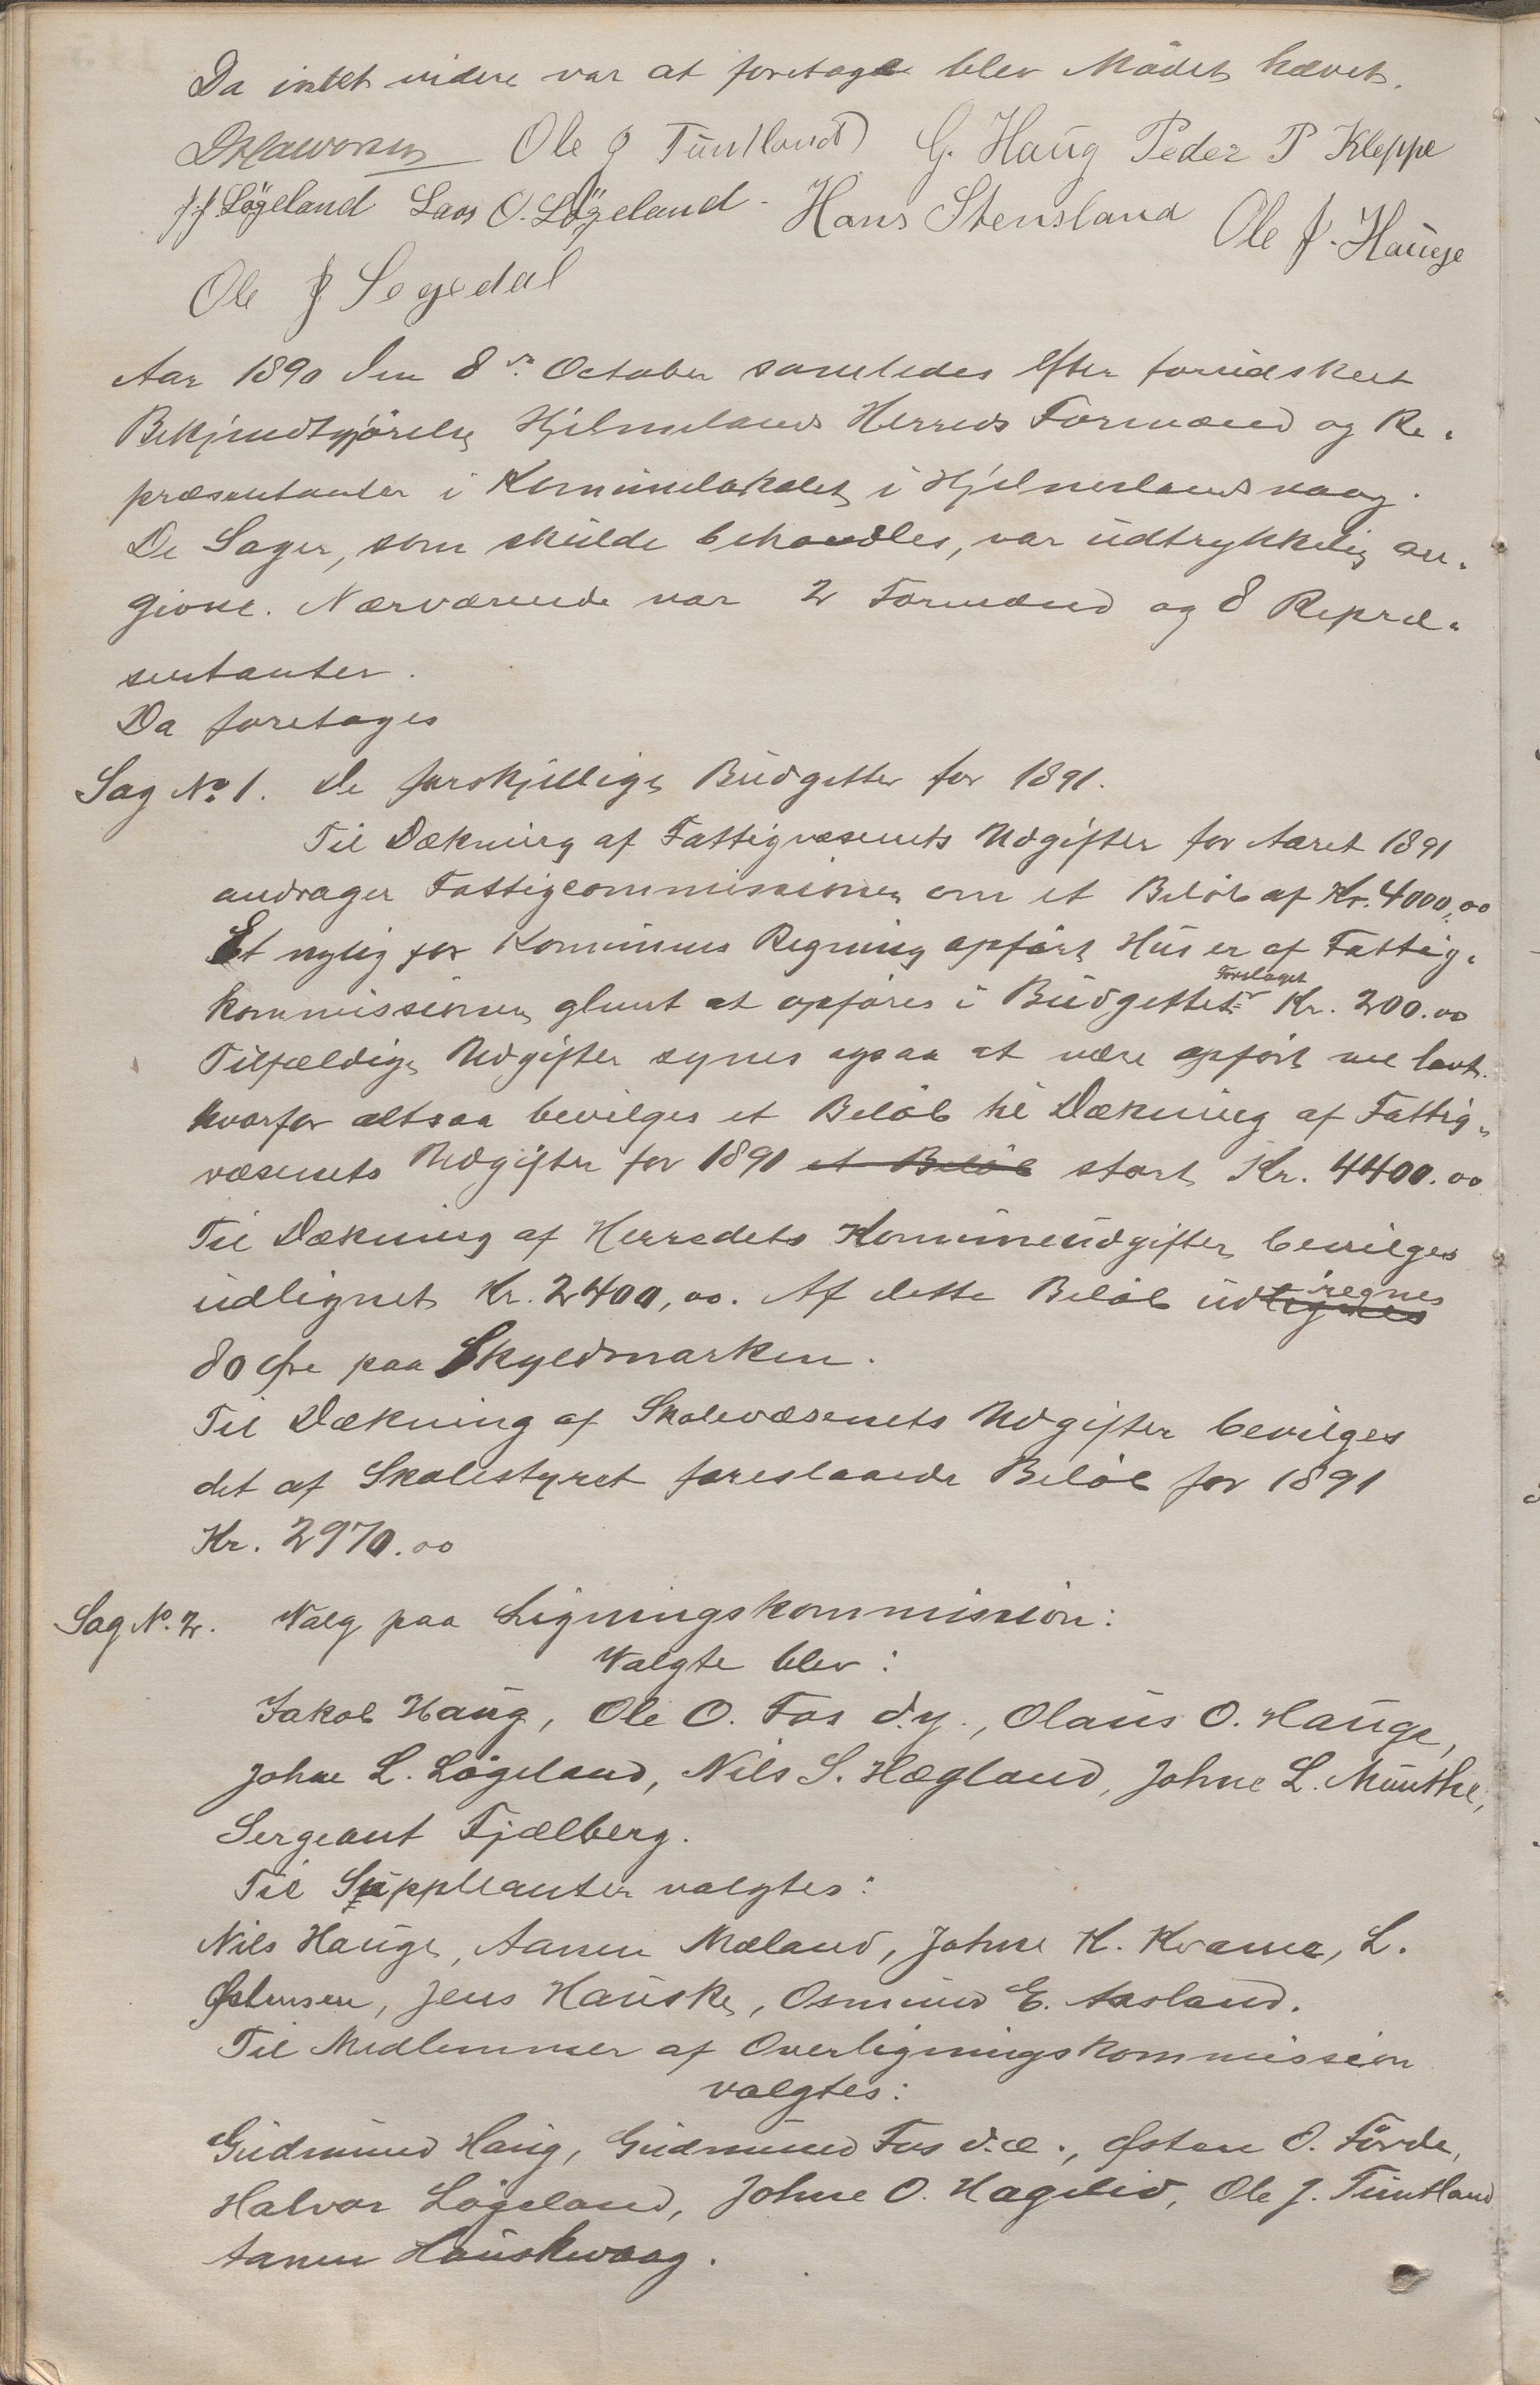 Da intet videre var at foretage blev Mödet hævet.
Ole J Tuntland G. Haug Peder P Kleppe
J.J. Lögeland Lars O. Lögeland - Hans Stensland Ole J. Hauge
Ole J Segedal
Aar 1890 den 8de October samledes efter forudskeet
Bekjendtgjörelse Hjelmelands Herreds Formænd og Re-
præsentanter i Kommunelokalet i Hjelmelandsvaag.
De Sager, som skulde behandles, var udtrykkelig an-
givne. Nærværende var 2 Formænd og 8 Repræ-
sentanter.
Da foretoges
Sag No. 1. De forskjellige Budgetter for 1891.
Til Dækning af Fattigvæsenets Udgifter for Aaret 1891
andrager Fattigcommissionen om et Belöb af Kr. 4000,00
Et nylig for Kommunens Regning opfört Hus er af Fattig-
kommissionen glemt at opföres i Budgettet- Forslaget Kr. 200.00
Tilfældige Udgifter synes ogsaa at være opfört vel lavt.
hvorfor altsaa bevilges et Belöb til Dækning af Fattig-
væsenets Udgifter for 1891 et Belöb stort Kr. 4400.00
Til Dækning af Herredets Kommuneudgifter bevilges
udlignet Kr. 2400,00. Af dette Belöb udlignes regnes
80 Øre paa Skyldmarken.
Til Dækning af Skolevæsenets Udgifter bevilges
det af Skolestyret foreslaaede Belöb for 1891
Kr. 2970.00
Sag No. 2. Valg paa Ligningskommission:
Valgte blev:
Jakob Haug, Ole O. Fos d.y., Olaus O. Hauge,
Johne L. Lögeland, Nils S. Hægland, Johne L. Munthe,
Sergeant Fjælberg.
Til Suppleanter valgtes:
Nils Hauge, Aanen Mæland, Johne K. Kvame, L.
Østensen, Jens Hauske, Osmund E. Aasland.
Til Medlemmer af Overligningskommission
valgtes:
Gudmund Haug, Gudmund Fos d.æ., Østen O. Förde,
Halvor Lögeland, Johne O. Hagelid, Ole J. Tuntland
Aanen Hauskevaag.